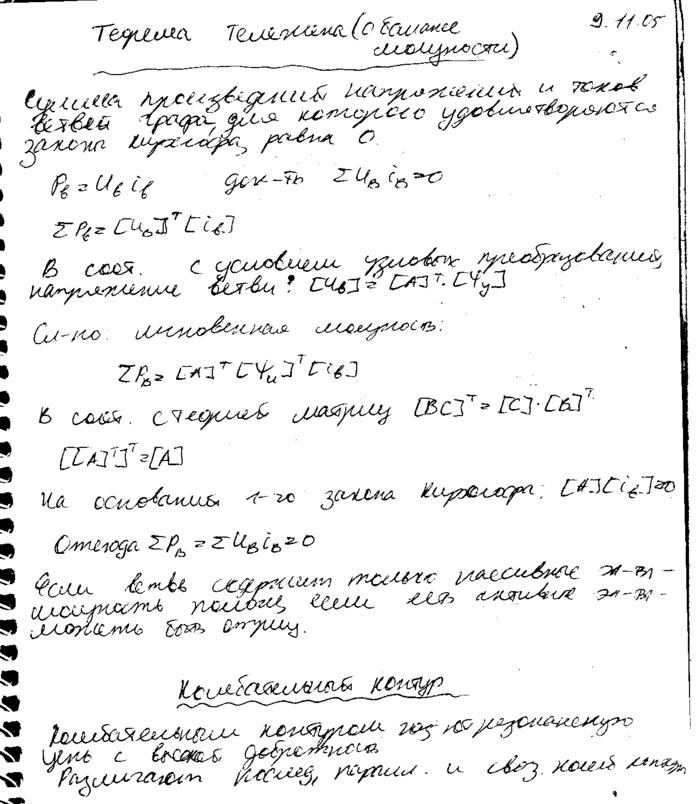 9.11.05
Теорема Телегена (о балансе
мощности)
Сумма произведений напряжений и токов
ветвей графа, для которого удовлетворяются
законы Кирхгофа, равна 0.
Pв = Uв iв док-ть ΣUв iв=0
ΣPв= [Uв]ᵀ [iв]
В соот. с условием узловых преобразований,
напряжение ветви: [Uв]=[A]ᵀ·[Ψу]
Сл-но: мгновенная мощность:
ΣPв= [A]ᵀ [Ψu]ᵀ [iв]
В соот. с теорией матриц [BC]ᵀ=[C]·[B]ᵀ
[[A]ᵀ]ᵀ=[A]
На основании 1-го закона Кирхгофа: [A][iв]=0
Отсюда ΣPв = ΣUв iв=0
Если ветвь содержит только пассивные эл-ты -
мощность полож, если есть активные эл-ты -
может быть отриц.
Колебательный контур
Колебательным контуром наз-ют резонансную
цепь с высокой добротностью
Различают послед, парал. и связ. колеб